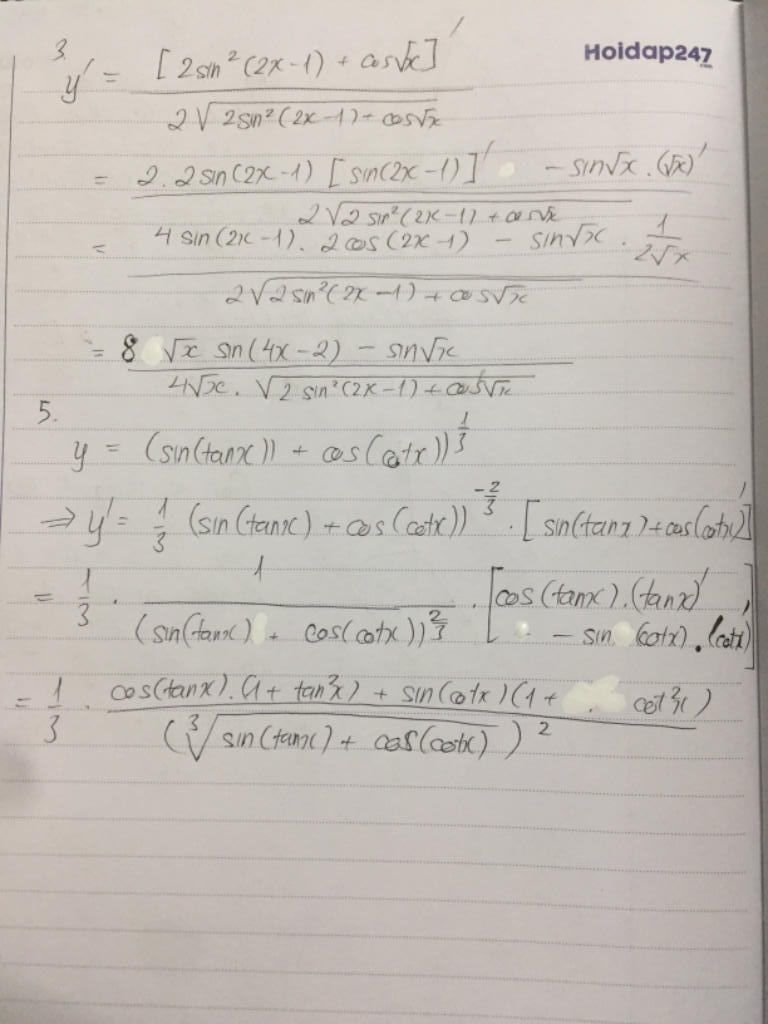 Hoidap247
.com
3.
y' = [2sin²(2x-1) + cos√x]' / 2√(2sin²(2x-1) + cos√x)
= 2.2sin(2x-1) [sin(2x-1)]' - sin√x . (√x)' / 2√(2sin²(2x-1) + cos√x)
= 4sin(2x-1). 2cos(2x-1) - sin√x . 1/2√x / 2√(2sin²(2x-1) + cos√x)
= 8 √x sin(4x-2) - sin√x / 4√x . √(2sin²(2x-1) + cos√x)
5.
y = (sin(tanx)) + cos(cotx))^(1/3)
⇒ y' = 1/3 (sin(tanx) + cos(cotx))^(-2/3) . [sin(tanx) + cos(cotx)]'
= 1/3 . 1 / (sin(tanx) + cos(cotx))^(2/3) . [cos(tanx).(tanx)' - sin (cotx) . (cotx)']
= 1/3 . cos(tanx).(1 + tan²x) + sin(cotx)(1 + cot²x) / (∛(sin(tanx) + cos(cotx)))²